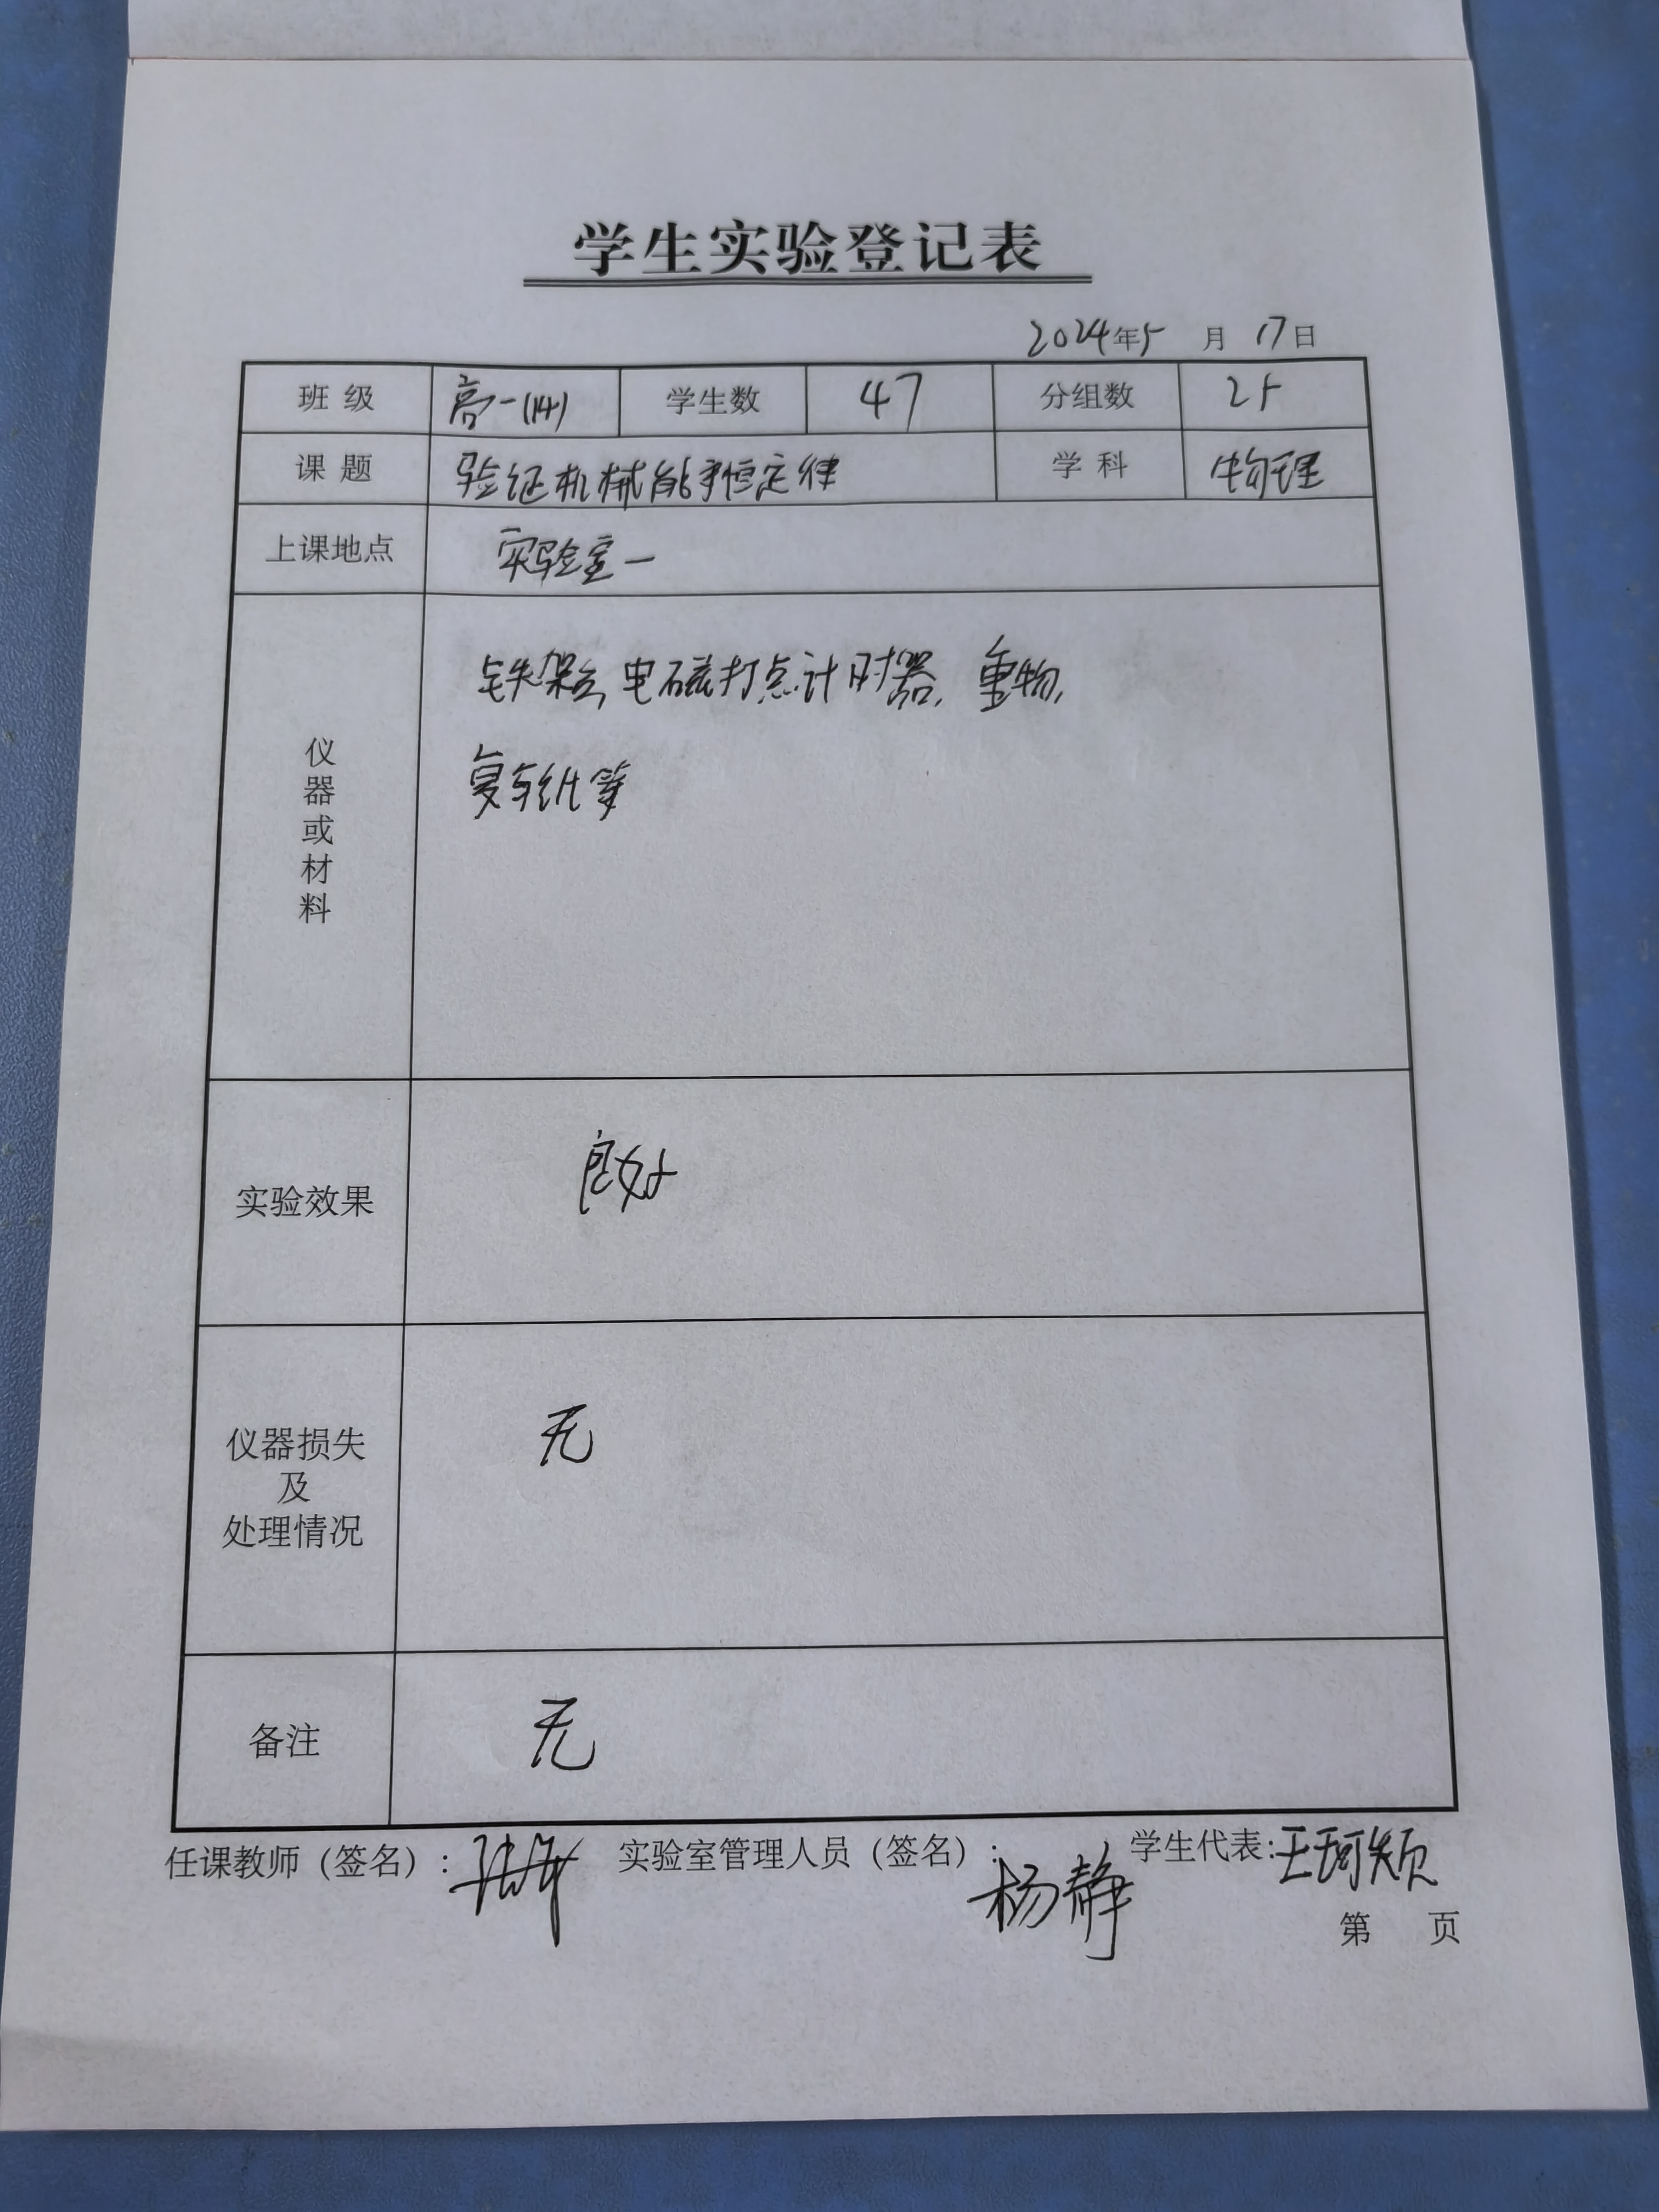 学生实验登记表
2024年5月17日
班级 高一(14) 学生数 47 分组数 25
课题 验证机械能守恒定律 学科 物理
上课地点 实验室一
仪器或材料 铁架台,电磁打点计时器,重物,
复写纸等
实验效果 良好
仪器损失
及
处理情况 无
备注 无
任课教师(签名): 实验室管理人员(签名):杨静 学生代表:王珂颖
第 页